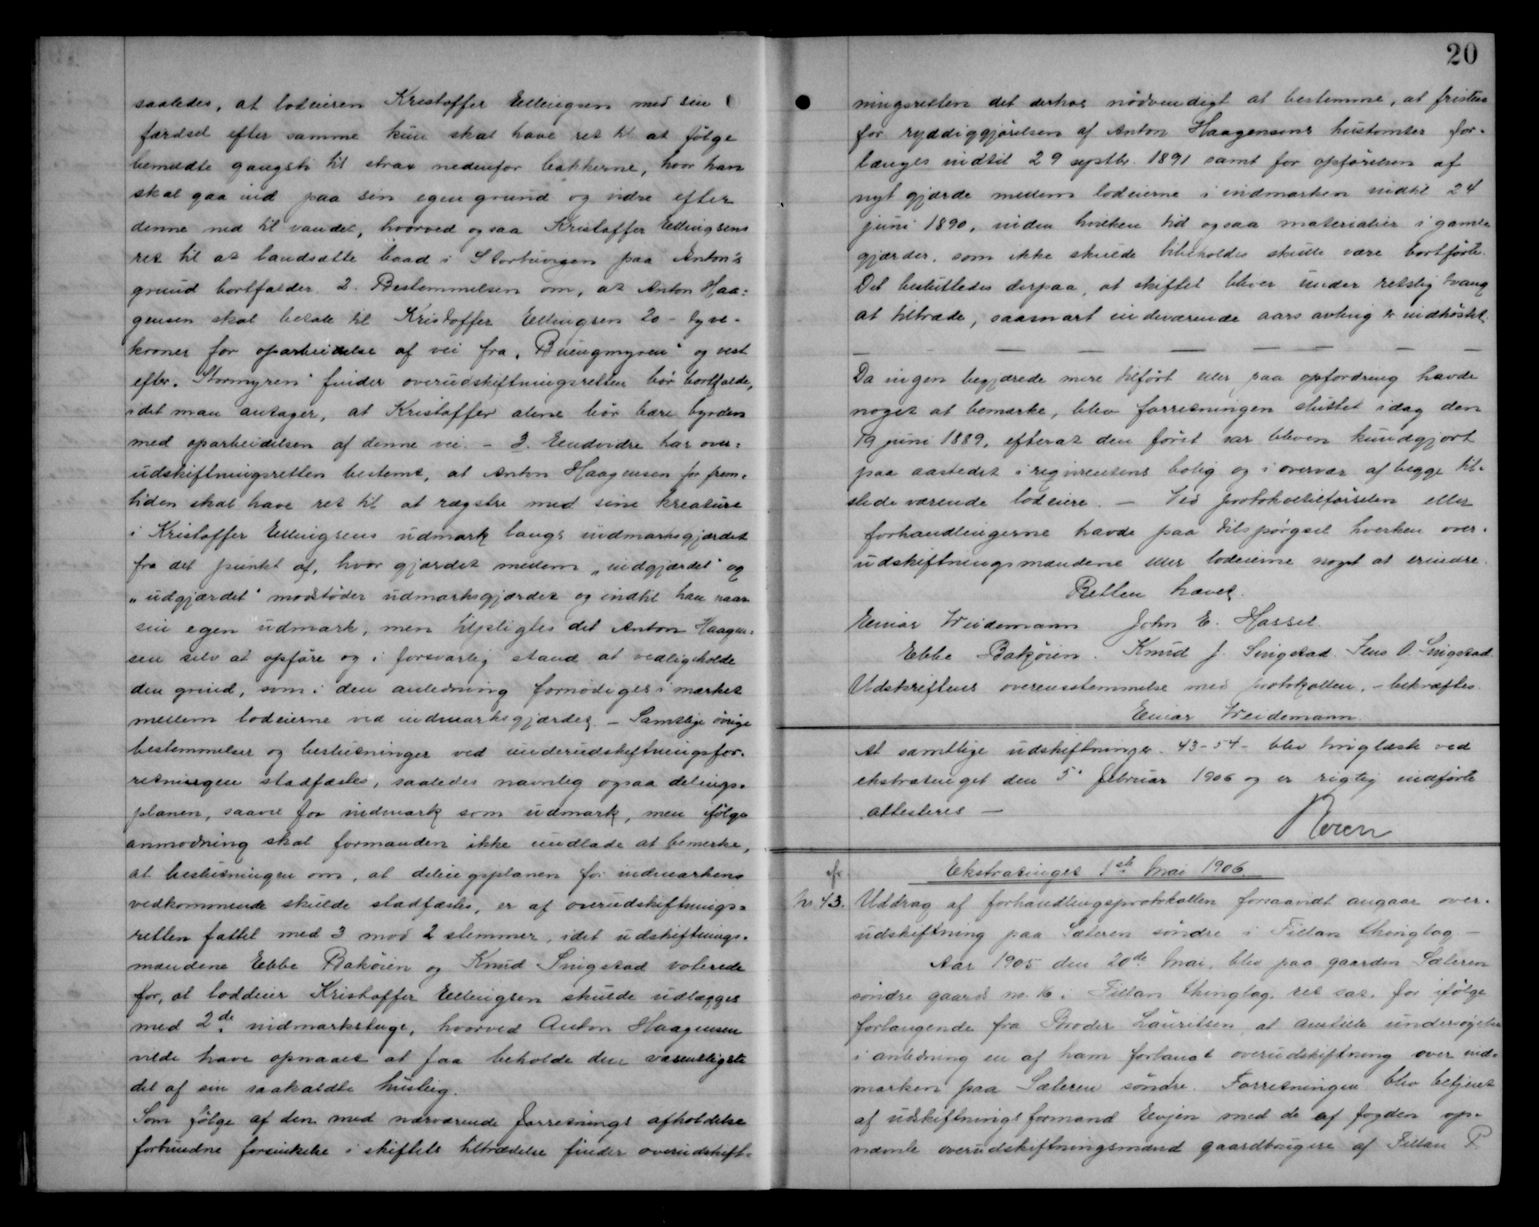 saaledes, at lodeieren Kristoffer Ellingsen med sin
færdsel efter samme kun skal have ret til at følge
bemeldte gangsti til strax nedenfor bakkerne, hvor han
skal gaa ind paa sin egen grund og videre efter
denne ned til vandet, hvorved ogsaa Kristoffer Ellingsens
ret til at landsætte baad i Stortuingen paa Anton's
grund bortfalder. 2. Bestemmelsen om, at Anton Haa-
gensen skal betale til Kristoffer Ellingsen 20 - tyve -
kroner for oparbeidelse af vei fra "Buengmyren" og vest
efter "Stormyren" finder overudskiftningsretten bør bortfalde,
idet man antager, at Kristoffer alene bør bære byrden
med oparbeidelsen af denne vei. - 3. Eendvidre har over-
udskiftningsretten bestemt, at Anton Haagensen for frem-
tiden skal have ret til at rægstre med sine kreature
i Kristoffer Ellingsens udmark langs indmarksgjærdet
fra det punkt af, hvor gjærdet mellem "indgjærdet" og
"udgjærdet" modstøder udmarksgjærdet og indtil han naar
sin egen udmark, men tilpligtes det Anton Haagen-
sen selv at opføre og i forsvarlig stand at vedligeholde
den grind, som i den anledning fornødiges i mærket
mellem lodeierne ved indmarksgjærdet. - Samtlige øvrige
bestemmelser og beslutninger ved underudskiftningsfor-
retningen stadfæstes, saaledes navnlig ogsaa delings-
planen, saavel for indmark som udmark, men ifølge
anmodning skal formanden ikke undlade at bemerke,
at beslutningen om, at delingsplanen for indmarkens
vedkommende skulde stadfæstes, er af overudskiftnings-
retten fattet med 3 mod 2 stemmer, idet udskiftnings-
mændene Ebbe Bakøien og Knud Singstad voterede
for, at loddeier Kristoffer Ellingsen skulde udlægges
med 2de indmarksteige, hvorved Anton Haagensen
vilde have opnaaet at faa beholde den væsentligste
del af sin saakaldte husteig.
Som følge af den med nærværende forretnings afholdelse
forbundne forsinkelse i skiftets tiltrædelse finder overudskift-
20
ningsretten det derhos nødvendigt at bestemme, at fristen
for ryddiggjørelsen af Anton Haagensens hustomter for-
længes indtil 29 septbr. 1891 samt for opførelsen af
nyt gjærde mellem lodeierne i indmarken indtil 24
juni 1890, inden hvilken tid ogsaa materialier i gamle
gjærder, som ikke skulde bibeholdes skulle være bortførte.
Det besluttedes derpaa, at skiftet bliver under retslig tvang
at tiltræde, saasnart indeværende aars avling er indhøstet.
Da ingen begjærede mere tilført eller paa opfordring havde
noget at bemærke, blev forretningen sluttet idag den
19 juni 1889, efterat den først var bleven kundgjort
paa aastedet i reqvirentens bolig og i overvær af begge til-
stedeværende lodeiere. - Ved protokoltilførselen eller
forhandlingerne havde paa tilspørgsel hverken over-
udskiftningsmændene eller lodeierne noget at erindre.
Retten hævet.
Einar Weidemann John E. Hassel
Ebbe Bakøien. Knud J. Singstad. Jens O. Singstad
Udskriftens overensstemmelse med protokollen. - bekræftes.
Einar Weidemann.
At samtlige udskiftninger 43-54- blev tinglæst ved
ekstratinget den 5. februar 1906 og er rigtig indførte
attesteres -
Ekstratinget 1ste Mai 1906.
No 43. Uddrag af forhandlingsprotokollen forsaavidt angaar over-
udskiftning paa Sæteren søndre i Fillan thinglag. -
Aar 1905 den 20de Mai, blev paa gaarden Sæteren
søndre gaards no. 16 i Fillan thinglag ret sat, for ifølge
forlangende fra Peder Lauritsen, at anstille undersøgelse
i anledning en af ham forlangt overudskiftning over ind-
marken paa Sæteren søndre. Forretningen blev betjent
af udskiftningsformand Eevjen med de af fogden op-
nævnte overudskiftningsmænd gaardbrugere af Fillan P.